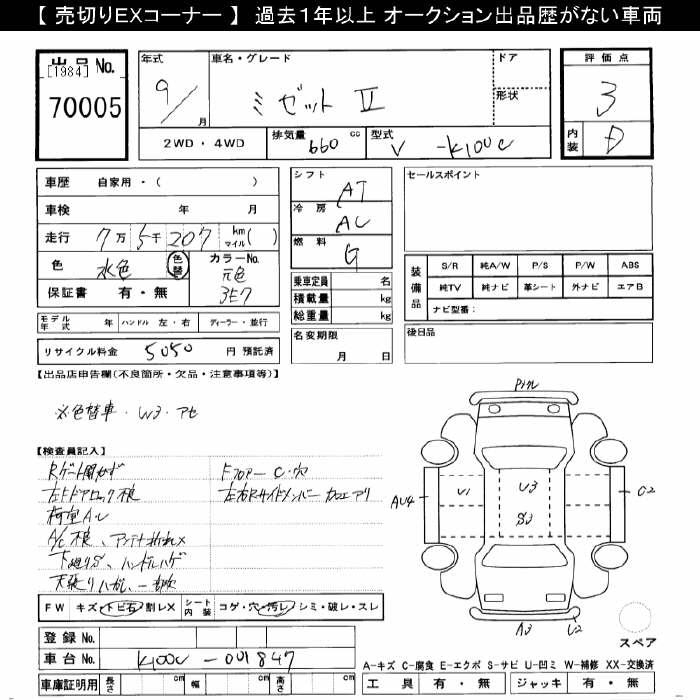 【 売切りEXコーナー 】 過去1年以上 オークション出品歴がない車両
出品 No.
[1984]
70005
年式
9/
月
車名・グレード
ミゼット Ⅱ
ドア
形状
2WD ・ 4WD
排気量 660 cc
型式 V -K100C
評価点
3
内装 D
車歴 自家用・( )
車検 年 月
走行 7万 5千 207 km マイル ( )
色 水色 色替
カラーNo. 元色 3E7
保証書 有・無
モデル年式 年 ハンドル 左・右 ディーラー・並行
リサイクル料金 5050 円 預託済
シフト AT
冷房 AC
燃料 G
乗車定員 名
積載量 kg
総重量 kg
名変期限
月 日
セールスポイント
装備品
S/R 純A/W P/S P/W ABS
純TV 純ナビ 革シート 外ナビ エアB
ナビ型番：
後日品
【出品店申告欄(不良箇所・欠品・注意事項等)】
※色替車・W3・アセ
【検査員記入】
Rゲート開かず
左FドアロックX
荷室A・U
下廻りS、ハンドルハゲ
Fフロアー C・穴
左右Rサイドメンバー カエアリ
FW キズ・トビ石・割レX
シート内装 コゲ・穴・汚レ・シミ・破レ・スレ
登録 No.
車台 No. K100C-001847
車庫証明用 長さ cm 幅 cm 高さ cm
AU4
U1
U3
S3
C2
A3
U2
スペア
A-キズ C-腐食 E-エクボ S-サビ U-凹ミ W-補修 XX-交換済
工具 有・無 ジャッキ 有・無